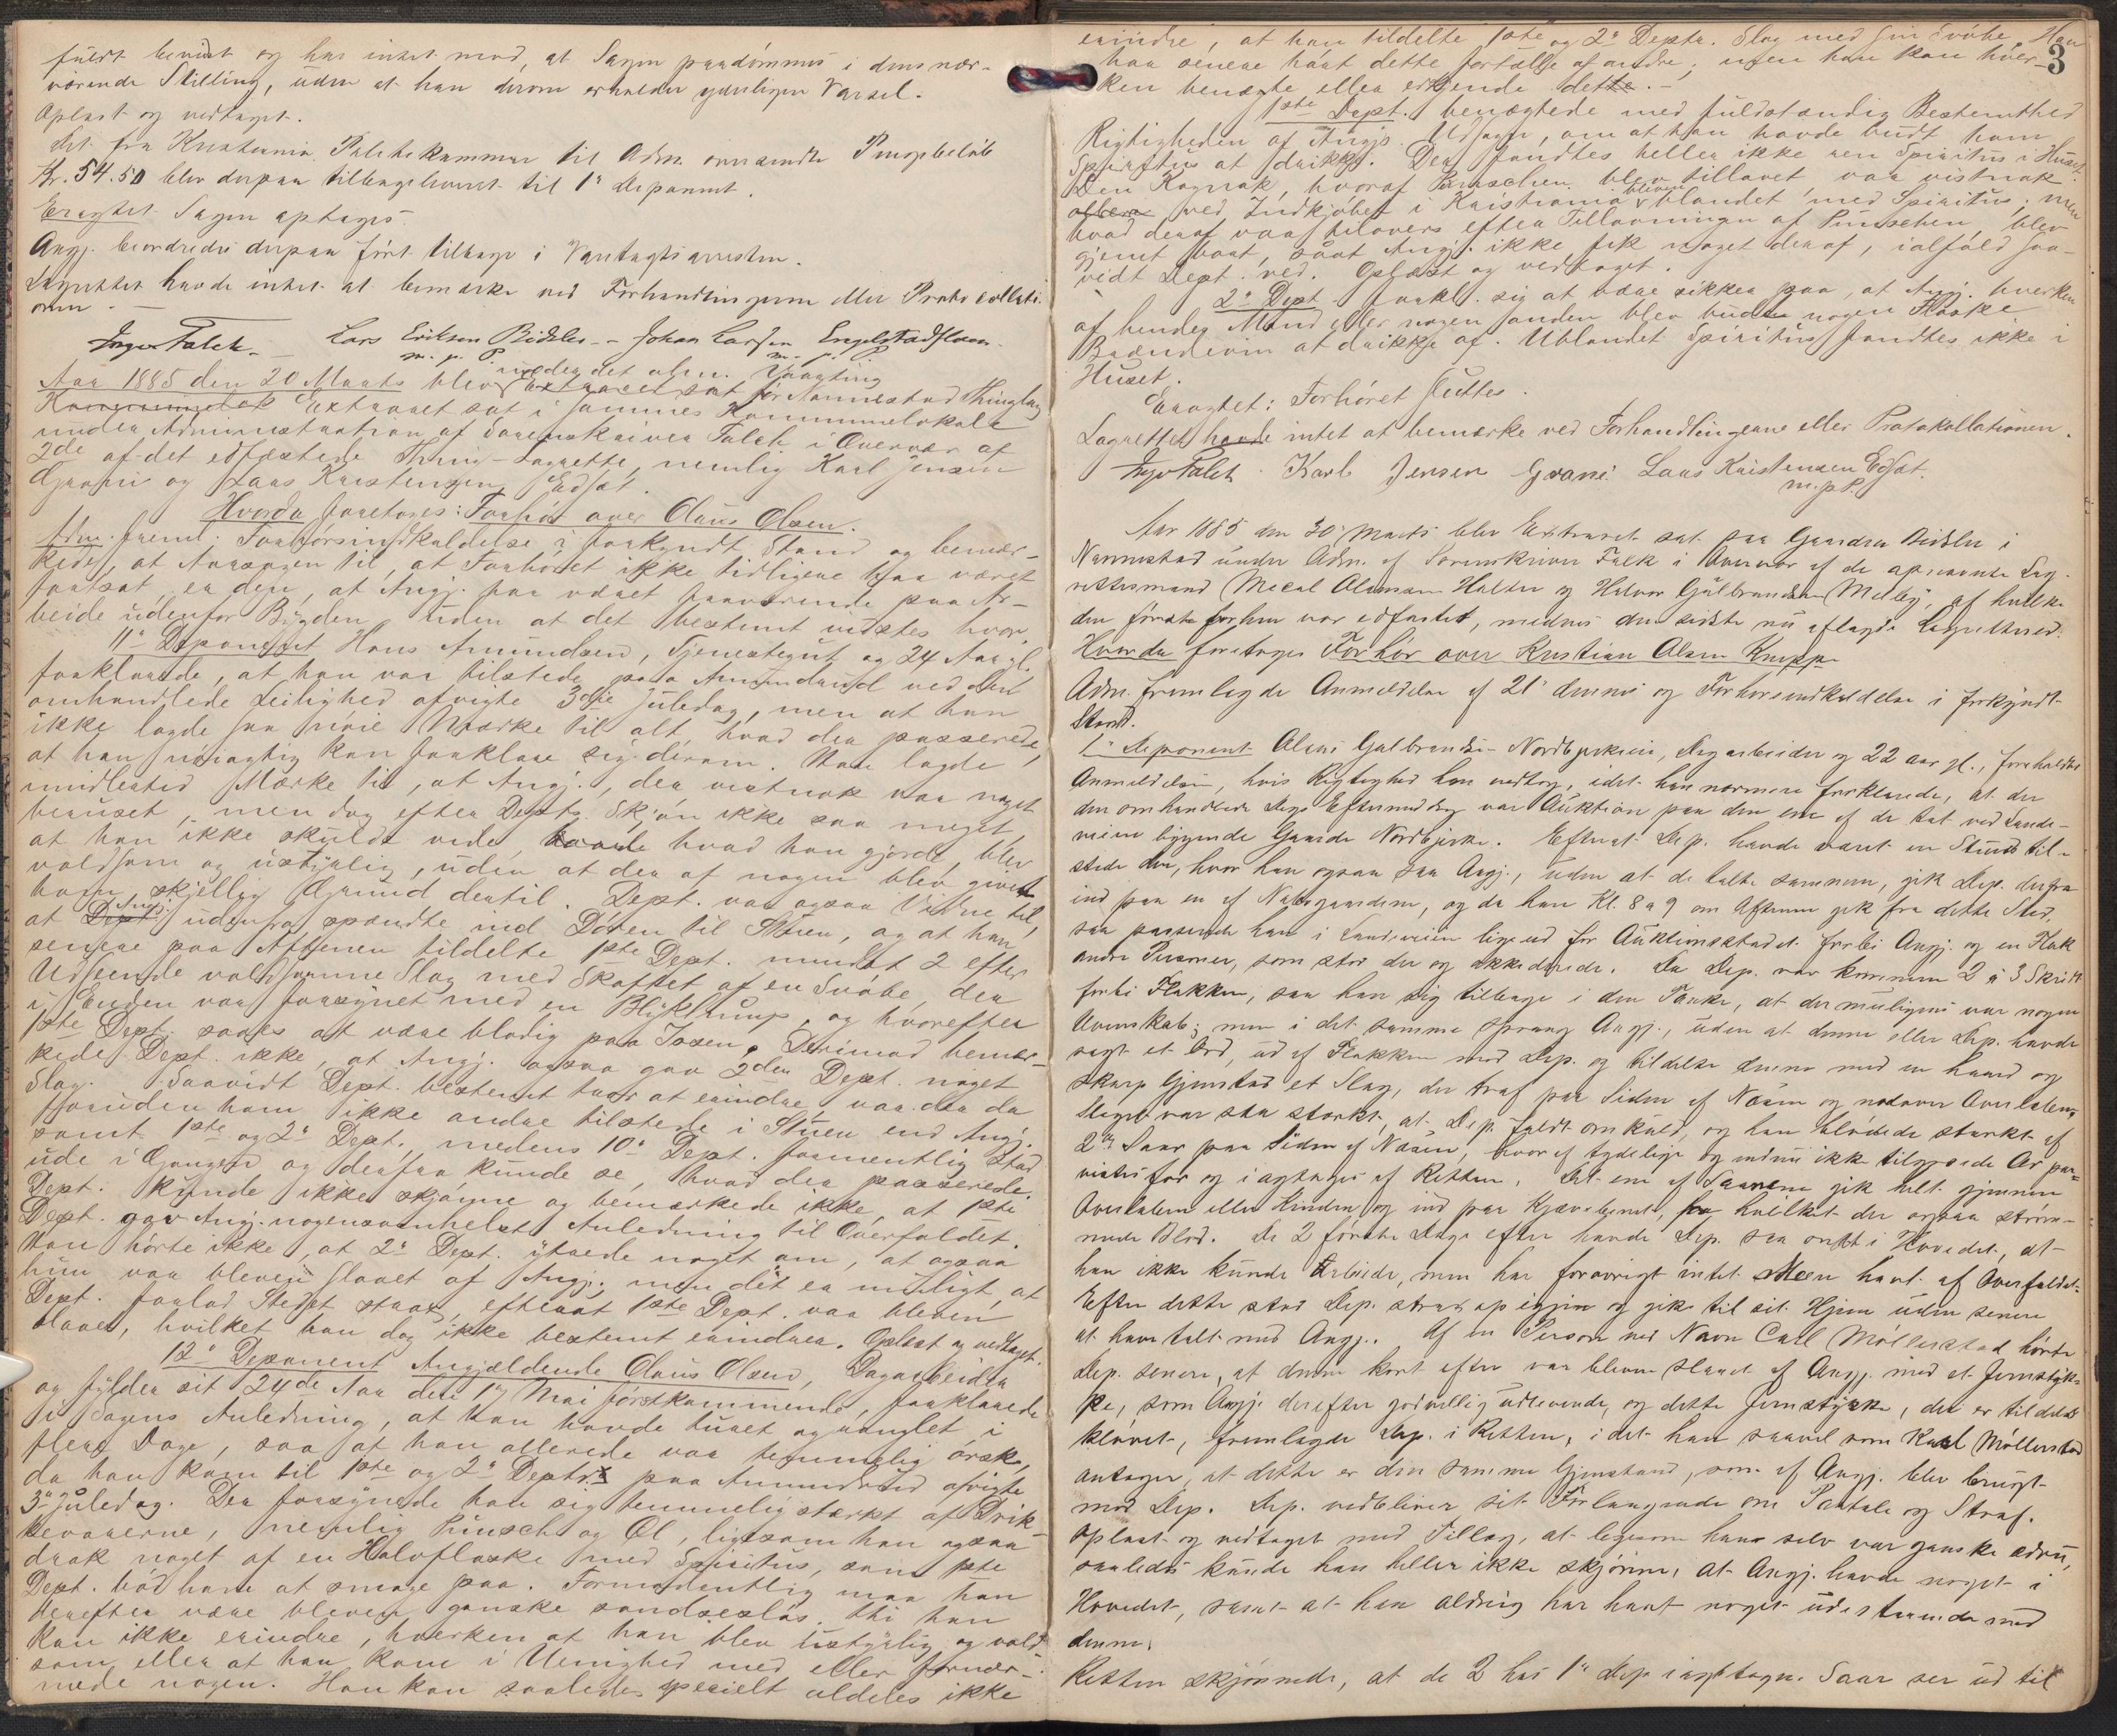 fuldt bevidst og har intet mod, at Sagen paadömmes i dens nær-
værende Stilling, uden at han derom erholder yderligere Varsel.
Oplæst og vedtaget.
Det fra Kristiania Politikammer til Adm. oversendte Pengebeløb
Kr. 54.50 blev derpaa tilbageleveret til 1ste Deponent.
Eragtet Sagen optages.
Angj. beordredes derpaa fört tilbage i Varetægtsarresten.
Lagrettet havde intet at bemærke ved Forhandlingerne eller Protokollati-
onen.
Inger Falch. Lars Eriksen Bidsler - Johan Larsen Engelstadfloen
m. p. P. m. p. P.
under det alm. Vaarting
Aar 1885 den 20 Marts blev Extraret sat for Nannestad Thinglag
Extraret sat i sammes Kommunelokale
under Administration af Sorenskriver Falch i Overvær af
2de af det edfæstede Thing-Lagrette, nemlig Karl Jensen
Grani og Lars Kristensen Edsat.
Hvorda foretoges: Forhör over Olaus Olsen.
Adm. freml. Forhörsindkaldelse i forkyndt Stand og bemær-
kede, at Aarsagen til, at Forhöret ikke tidligere har været
fortsat, er den, at Angj. har været fraværende paa Ar-
beide udenfor Bygden uden at det bestemt vidstes hvor.
11te Deponent Hans Amundsen, Tjenestegut og 24 Aar gl.
forklarede, at han var tilstede paa Amundrud ved den
omhandlede Leilighed afvigte 3die Juledag, men at han
ikke lagde saa nöie Mærke til alt, hvad der passerede,
at han nöiagtig kan forklare sig derom. Han lagde
imidlertid Mærke til, at Angj., der vistnok var noget
beruset, men dog efter Depts. Skjön ikke saa meget,
at han ikke skulde vide, hvad han gjorde, blev
voldsom og ustyrlig, uden at der af nogen blev givet
ham skjellig Grund dertil. Dept. var ogsaa Vidne til,
at Angj. udenfra spændte ind Dören til Stuen, og at han
senere paa Aftenen tildelte 1ste Dept. mindst 2 efter
Udseende voldsomme Slag med Skaftet af en Svöbe, der
i Enden var forsynet med en Blyklump, og hvorefter
1ste Dept. saaes at være blodig paa Issen. Derimod bemær-
kede Dept. ikke, at Angj. ogsaa gav 2den Dept. noget
Slag. Saavidt Dept. bestemt tror at erindre, var der da
foruden ham ikke andre tilstede i Stuen end Angj.
samt 1ste og 2den Dept., medens 10de Dept. formentlig stod
ude i Gangen og derfra kunde se, hvad der passerede.
Dept. kunde ikke skjönne og bemærkede ikke, at 1ste
Dept. gav Angj. nogensomhelst Anledning til Overfaldet.
Han hörte ikke, at 2den Dept. ytrede noget om, at ogsaa
hun var bleven slaaet af Angj., men det er muligt, at
Dept. forlod Stedet strax, efterat 1ste Dept. var bleven
slaaet, hvilket han dog ikke bestemt erindrer. Oplæst og vedtaget.
12te Deponent Angjældende Olaus Olsen, Dagarbeider
og fylder sit 24de Aar den 17 Mai förstkommende, forklarede
i Sagens Anledning, at han havde turet og ranglet i
flere Dage, saa at han allerede var temmelig örsk,
da han kom til 1ste og 2den Deptr. paa Amundrud afvigte
3die Juledag. Der forsynede han sig temmelig stærkt af Drik-
kevarerne, nemlig Punsch og Öl, ligesom han ogsaa
drak noget af en Halvflaske med Spiritus, som 1ste
Dept. böd ham at smage paa. Formodentlig maa han
derefter være bleven ganske sandseslös, thi han
kan ikke erindre, hverken at han blev ustyrlig og vold-
som eller at han kom i Uenighed med eller fornær-
mede nogen. Han kan saaledes specielt aldeles ikke
3
erindre, at han tildelte 1ste og 2den Deptr. Slag med sin Svöbe. Han
har senere hört dette fortælle af andre, men han kan hver-
ken benægte eller erkjende dette. -
1ste Dept. benægtede med fuldstændig Bestemthed
Rigtigheden af Angjs. Udsagn, om at han havde budt ham
Spiritus at drikke. Der fandtes heller ikke ren Spiritus i Huset.
Den Kognak, hvoraf Punschen blev tillavet var vistnok
bleven
ved Indkjöbet i Kristiania blandet med Spiritus, men
hvad deraf var tilovers efter Tillavningen af Punschen, blev
gjemt bort, saa at Angj. ikke fik noget deraf, ialfald saa-
vidt Dept. ved. Oplæst og vedtaget.
2den Dept. forkl. sig at være sikker paa, at Angj. hverken
af hendes Mand eller nogen anden blev buden nogen Flaske
Brændevin at drikke af. Ublandet Spiritus fandtes ikke i
Huset.
Eragtet: Forhöret sluttes.
Lagrettet havde intet at bemærke ved Forhandlingerne eller Protokollationen.
Inger Falch. Karl Jensen Grani. Lars Kristensen Edsat.
m.p.P.
Aar 1885 den 30 Marts blev Extraret sat paa Gaarden Bidsler i
Nannestad under Adm. af Sorenskriver Falck i Overvær af de opnævnte Lag-
rettesmænd Mecal Olsensen Holter og Halvor Gulbrandsen Melby, af hvilke
den förste forhen var edfæstet, medens den sidste nu aflagde Lagrettesed.
Hvorda foretoges Forhör over Kristian Olsen Knapp
Adm. fremlagde Anmeldelse af 21 dennes og Forhörsindkaldelse i forkyndt
Stand.
1ste Deponent Olaus Gulbrandsen Nordbyeie, Dagarbeider og 22 aar gl., foreholdtes
Anmeldelsen, hvis Rigtighed han vedtog, idet han nærmere forklarede, at der
den omhandlede Dags Eftermiddag var Auktion paa den ene af de tæt ved Lande-
veien liggende Gaarde Nordbyerne. Efterat Dep. havde været en Stund til-
stede der, hvor han ogsaa saa Angj., uden at de talte sammen, gik Dep. derfra
ind paa en af Nabogaardene, og da han Kl. 8 a 9 om Aftenen gik fra dette Sted,
saa passerede han i Landeveien ligeud for Auktionsstedet forbi Angj. og en Flok
andre Personer, som stod der og akkederede. Da Dep. var kommen 2 á 3 Skridt
forbi Flokken, saa han sig tilbage i den Tanke, at der muligens var nogen
Uvenskab; men i det samme sprang Angj., uden at denne eller Dep. havde
sagt et Ord, ud af Flokken mod Dep. og tildelte denne med en haard og
skarp Gjenstand et Slag, der traf paa Siden af Næsen og nedover Overlæben.
Slaget var saa stærkt, at Dep. faldt omkuld, og han blödede stærkt af
2de Saar paa Siden af Næsen, hvoraf tydelige og endnu ikke tilgroede Ar paa-
vistes for og iagttoges af Retten. Det ene af Saarene gik helt gjennem
Overlæben eller Kinden og ind paa Kjævebenet, fra hvilket der ogsaa ström-
mede Blod. De 2 förste Dage efter havde Dep. saa ondt i Hovedet, at
han ikke kunde arbeide, men har forövrigt intet Meen havt af Overfaldet.
Efter dette stod Dep. strax op igjen og gik til sit Hjem uden senere
at have talt med Angj. Af en Person ved Navn Carl Möllerstad hörte
Dep. senere, at denne kort efter var bleven slaaet af Angj. med et Jernstyk-
ke, som Angj. derefter godvillig udleverede, og dette Jernstykke, der er tildels
klövet, fremlagde Dep. i Retten, idet han saavel som Karl Möllerstad
antager, at dette er den samme Gjenstand, som af Angj. blev brugt
mod Dep. Dep. vedbliver sit Forlangende om Paatale og Straf.
Oplæst og vedtaget med Tillæg, at ligesom han selv var ganske ædru,
saaledes kunde han heller ikke skjönne, at Angj. havde noget i
Hovedet, samt at han aldrig har havt noget udestaaende med
denne.
Retten skjönnede, at de 2 hos 1ste Dep. iagttagne Saar ser ud til